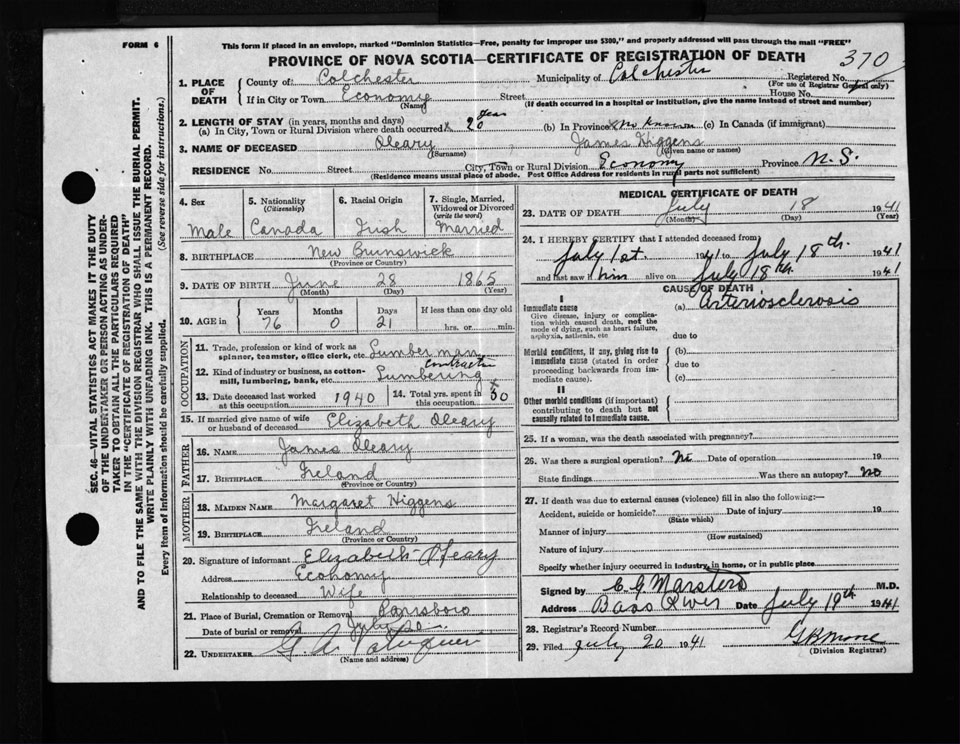 FORM 6
This form if placed in an envelope, marked "Dominion Statistics—Free, penalty for improper use $300," and properly addressed will pass through the mail "FREE"
PROVINCE OF NOVA SCOTIA—CERTIFICATE OF REGISTRATION OF DEATH
370
1. PLACE OF DEATH
County of: Colchester Municipality of Colchester Registered No.
(For use of Registrar General only)
If in City or Town Economy Street House No.
(Name) (If death occurred in a hospital or institution, give the name instead of street and number)
2. LENGTH OF STAY (in years, months and days)
(a) In City, Town or Rural Division where death occurred 20 years (b) In Province (c) In Canada (if immigrant)
3. NAME OF DECEASED Oleary James Higgens
(Surname) (Given name or names)
RESIDENCE No. Street City, Town or Rural Division Economy Province N.S.
(Residence means usual place of abode. Post Office Address for residents in rural parts not sufficient)
4. Sex Male
5. Nationality (Citizenship) Canada
6. Racial Origin Irish
7. Single, Married, Widowed or Divorced (write the word) Married
8. BIRTHPLACE New Brunswick
(Province or Country)
9. DATE OF BIRTH June 28 1865
(Month) (Day) (Year)
10. AGE in Years Months Days If less than one day old
76 0 21 hrs. or min.
OCCUPATION
11. Trade, profession or kind of work as spinner, teamster, office clerk, etc. Lumber man
contractor
12. Kind of industry or business, as cotton-mill, lumbering, bank, etc. Lumbering
13. Date deceased last worked at this occupation 1940
14. Total yrs. spent in this occupation 50
15. If married give name of wife or husband of deceased Elizabeth Oleary
FATHER
16. NAME James Oleary
17. BIRTHPLACE Ireland
(Province or Country)
MOTHER
18. MAIDEN NAME Margaret Higgens
19. BIRTHPLACE Ireland
(Province or Country)
20. Signature of informant Elizabeth O'leary
Address Economy
Relationship to deceased Wife
21. Place of Burial, Cremation or Removal Parrsboro
Date of burial or removal July 20
22. UNDERTAKER G. A.
(Name and address)
MEDICAL CERTIFICATE OF DEATH
23. DATE OF DEATH July 18 1941
(Month) (Day) (Year)
24. I HEREBY CERTIFY that I attended deceased from
July 1st. 1941 to July 18th. 1941
and last saw him alive on July 18th 1941
CAUSE OF DEATH
I
Immediate cause (a) Arteriosclerosis
Give disease, injury or complication which caused death, not the mode of dying, such as heart failure, asphyxia, asthenia, etc due to
Morbid conditions, if any, giving rise to immediate cause (stated in order proceeding backwards from immediate cause).
(b)
due to
(c)
II
Other morbid conditions (if important) contributing to death but not causally related to immediate cause.
25. If a woman, was the death associated with pregnancy?
26. Was there a surgical operation? No Date of operation 19
State findings Was there an autopsy? No
27. If death was due to external causes (violence) fill in also the following:—
Accident, suicide or homicide? Date of injury 19
(State which)
Manner of injury
(How sustained)
Nature of injury
Specify whether injury occurred in industry, in home, or in public place
Signed by C. G. Marsters M.D.
Address Bass River Date July 19th 1941
28. Registrar's Record Number
29. Filed July 20 1941 G R More
(Division Registrar)
SEC. 46—VITAL STATISTICS ACT MAKES IT THE DUTY
OF THE UNDERTAKER OR PERSON ACTING AS UNDER-
TAKER TO OBTAIN ALL THE PARTICULARS REQUIRED
IN THE "CERTIFICATE OF REGISTRATION OF DEATH"
AND TO FILE THE SAME WITH THE DIVISION REGISTRAR WHO SHALL ISSUE THE BURIAL PERMIT.
WRITE PLAINLY WITH UNFADING INK. THIS IS A PERMANENT RECORD.
Every item of information should be carefully supplied. (See reverse side for instructions.)